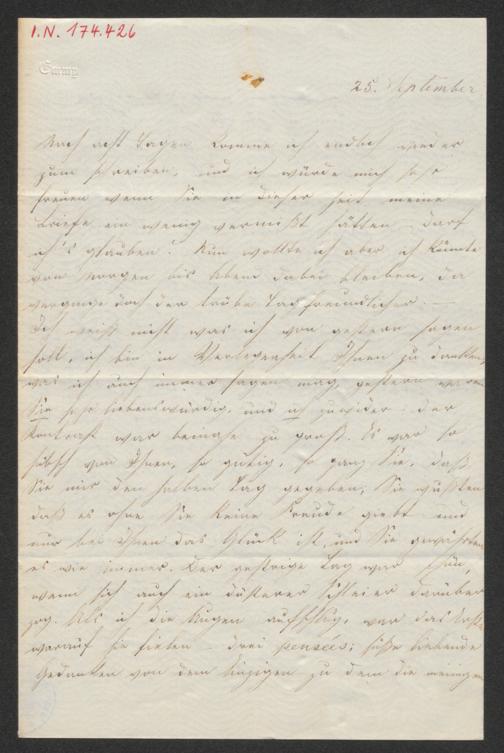 I.N. 174.426
25. September
Nach acht Tagen komme ich endlich wieder
zum schreiben, und ich würde mich sehr
freuen wenn Sie in dieser Zeit meine
Briefe ein wenig vermißt hätten. Darf
ich's glauben? Nun wollte ich aber ich könnte
von Morgen bis Abend dabei bleiben, da
verginge doch der trübe Tag freundlicher. —
Ich weiß nicht was ich von gestern sagen
soll, ich bin in Verlegenheit Ihnen zu danken,
was ich auch immer sagen mag, gestern waren
Sie sehr liebenswürdig, und ich zuwider: der
Kontrast war beinahe zu groß. Es war so
hübsch von Ihnen, so gütig, so ganz Sie, daß
Sie mir den halben Tag gegeben, Sie wußten
daß es ohne Sie keine Freude giebt und
nur bei Ihnen das Glück ist, und Sie gewährten
es wie immer. Der gestrige Tag war schön,
wenn sich auch ein düsterer Schleier darüber
zog. Als ich die Augen aufschlug, war das Erste
worauf sie fielen – drei pensées; süße liebende
Gedanken von dem Einzigen zu dem die meinigen